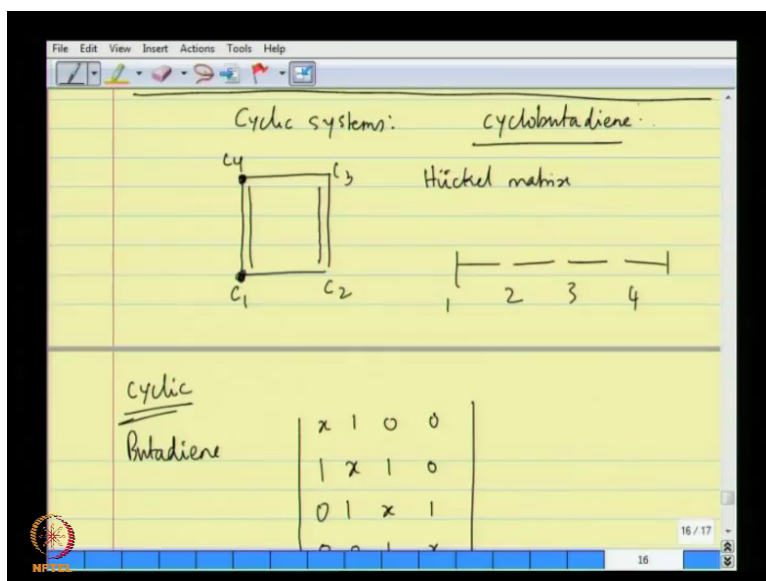 File Edit View Insert Actions Tools Help
Cyclic systems: cyclobutadiene:
C4 C3
Hückel matrix
C1 C2
1 2 3 4
cyclic
Butadiene
x 1 0 0
1 x 1 0
0 1 x 1
0 0 1 x
16 / 17
16
NPTEL